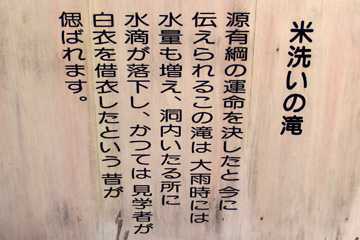 米洗いの滝
源有綱の運命を決したと今に
伝えられるこの滝は大雨時には
水量も増え、洞内いたる所に
水滴が落下し、かつては見学者が
白衣を借衣したという昔が
偲ばれます。